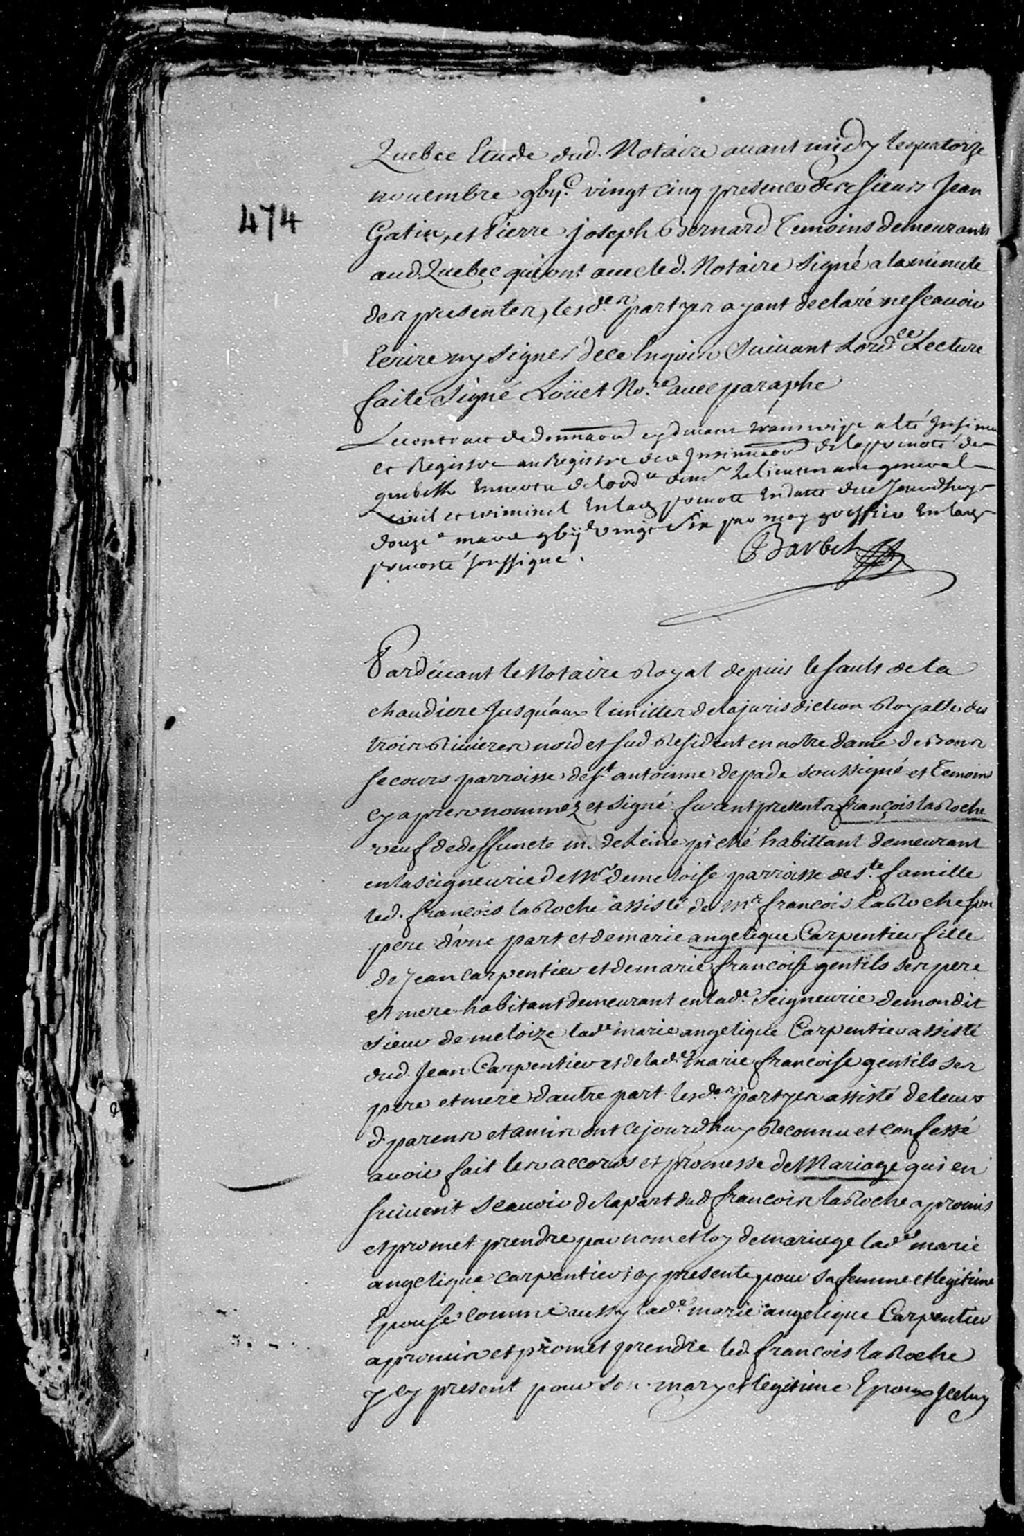 Quebec Etude dud. Notaire avant midy le quatorze
474
novembre gbyc. vingt cinq presence des sieurs Jean
Gatin, et Pierre Joseph Bernard Temoins demeurants
aud. Quebec qui ont avec led. Notaire signé a la minute
des presentes, lesd.es partyes ayant declaré ne scavoir
Ecrire ny signer de ce Enquis suivant Lord.ce Lecture
faite signé Loüet No.re avec paraphe
Le contract de donnaon cy devant transcript a été Insinué
et Registré au Registre des Insinuaons de la prevosté de
quebeck En vertu de lord.ce de mr. Le lieutenant general
Civil et criminel En lad. prevosté En datte du Jourdhuy
douze mars gbyc. vingt Six par moy greffier En lad.
prevosté soussigné.
Barbel
Pardevant le Notaire Royal depuis le sault de la
chaudiere Jusqu'aux limittes de la jurisdiction Royalle des
trois Rivieres nord et sud Resident en notre dame de Bons
secours parroisse de st. antoinne de pade soussigné et Temoins
cy apres nommez et signé furent presents françois la Roche
veuf de deffuncte m. deleine piché habittant demeurant
en la seigneurie de Mr. demeloise parroisse de ste. famille
led. françois la Roche assisté de mr. françois la Roche son
pere d'une part et de marie angelique Carpentier fille
de Jean carpentier et de marie francoise gentils ses pere
et mere habitant demeurant en lad.e Seigneurie de mondit
sieur de meloize lad.e marie angelique Carpentier assisté
dud. Jean Carpentier et de lad.e marie francoise gentils ses
pere et mere d'autre part lesd.es partyes assisté de leurs
d. parens et amis ont ce jourdhuy Reconnu et confessé
avoir fait les accords et promesse de Mariage qui en
suivent Scavoir de la part dud. francois la Roche a promis
et promet prendre par nom et loy de mariage lad.e marie
angelique carpentier; cy presente pour sa femme et legitime
Epouse comme aussy lad.e marie angelique Carpentier
a promis et promet prendre led. francois la Roche
cy present pour son mary et legitime Epoux Jceluy